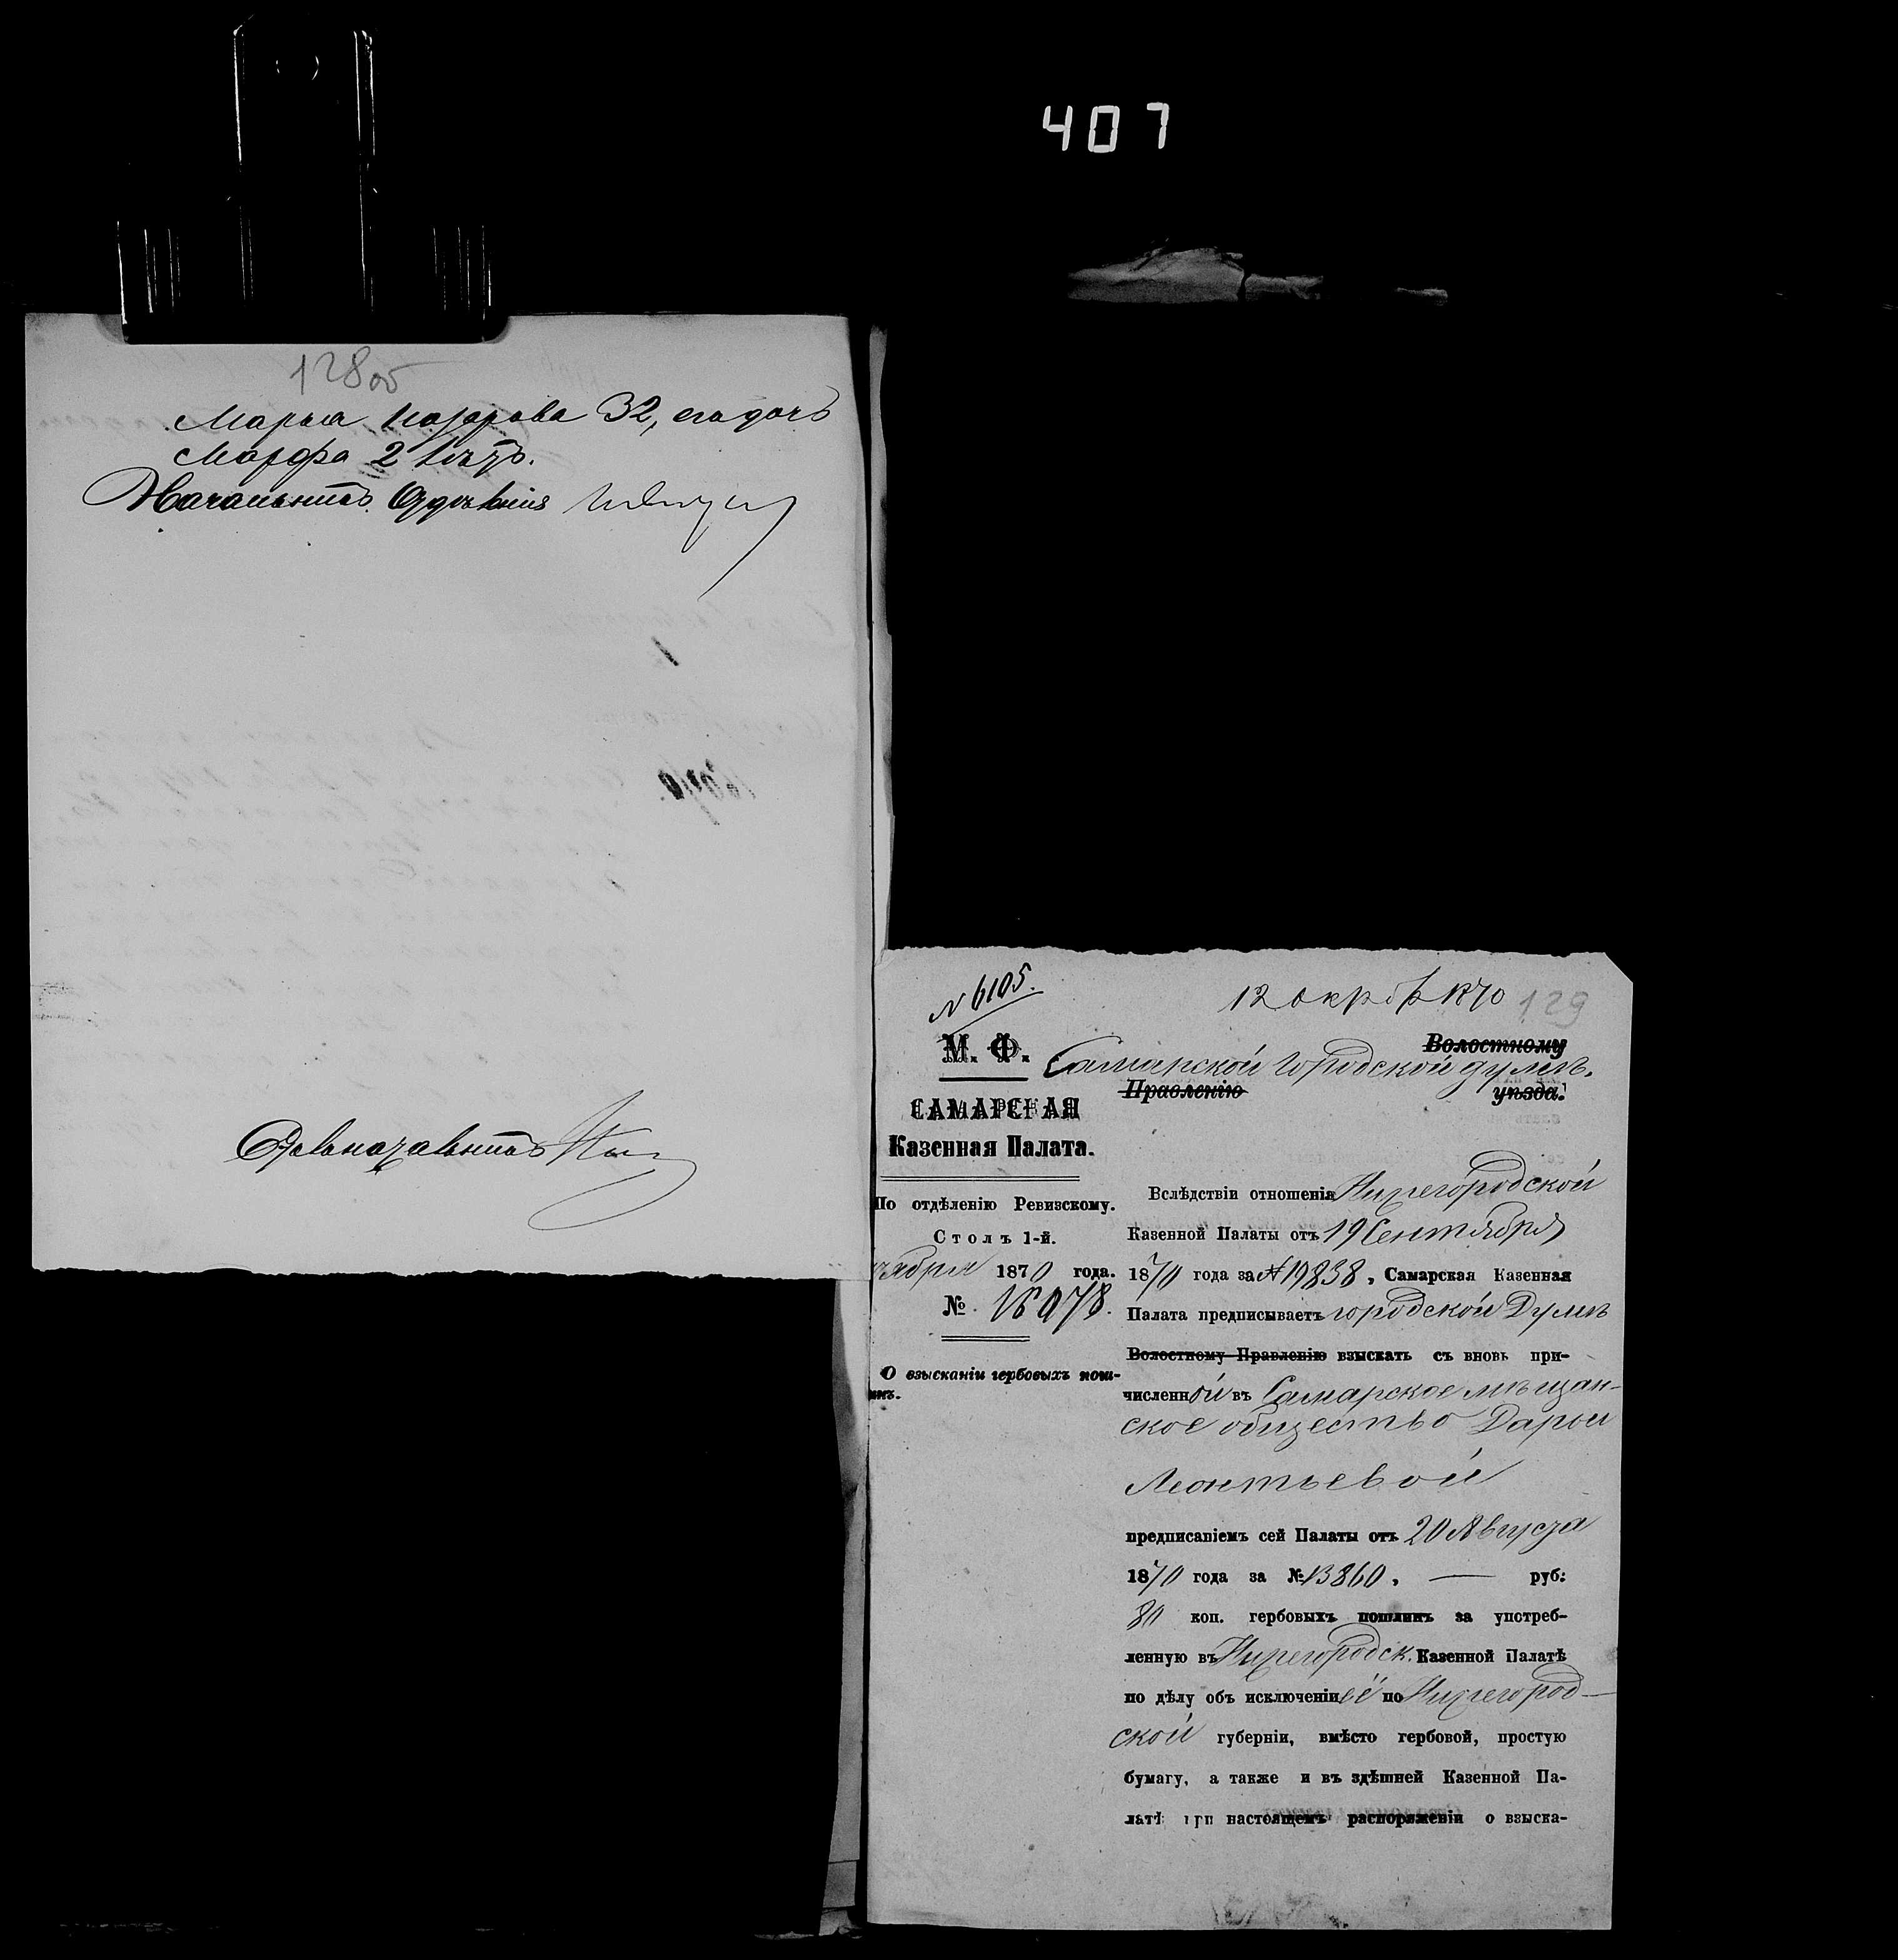 407
128об
Марья Назарова 32, его дочь
Марфа 2 лѣтъ.
Начальникъ Отдѣленія
Столоначальникъ
№ 6105.
12 октяб 1870
129
М. Ф.
Волостному
Самарской городской думѣ.
Правленію уѣзда.
САМАРСКАЯ
Казенная Палата.
По отдѣленію Ревизскому.
Столъ 1-й.
тября 1870 года.
№ 16078.
О взысканіи гербовыхъ пош-
инъ.
Вслѣдствіи отношенія Нижегородской
Казенной Палаты отъ 19 Сентября
1870 года за № 19838, Самарская Казенная
Палата предписываетъ городской Думѣ
Волостному Правленію взыскать съ вновь при-
численной въ Самарское мѣщан-
ское общество Дарьи
Леонтьевой
предписаніемъ сей Палаты отъ 20 Августа
1870 года за № 13860, — руб:
80 коп. гербовыхъ пошлинъ за употреб-
ленную въ Нижегородск. Казенной Палатѣ
по дѣлу объ исключеніи её по Нижегород-
ской губерніи, вмѣсто гербовой, простую
бумагу, а также и въ здѣшней Казенной Па-
латѣ при настоящемъ распоряженіи о взыска-